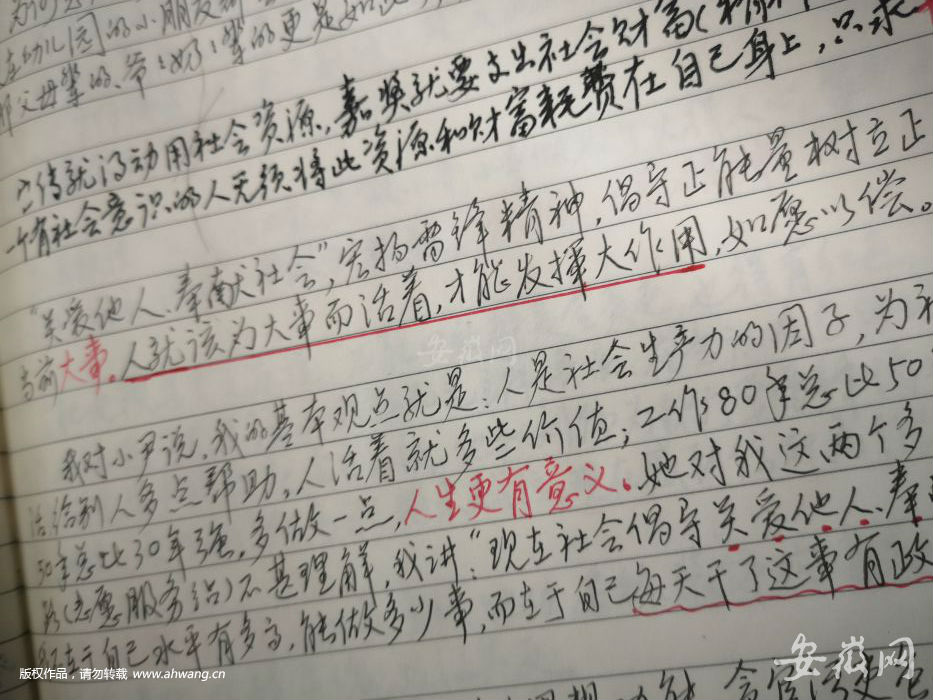 在幼儿园的小朋友
父母辈的、爷爷奶奶辈的更是如此
宣传就得动用社会资源，嘉奖就要支出社会财富(
一个有社会意识的人无须将此资源和财富耗费在自己身上，只求
“关爱他人、奉献社会”，宏扬雷锋精神，倡导正能量树立正
当前大事。人就该为大事而活着，才能发挥大作用，如愿以偿。
我对小尹说，我的基本观点就是：人是社会生产力的因子，为社
活给别人多点帮助，人活着就多些价值；工作80年总比50
50年总比30年强，多做一点，人生更有意义。她对我这两个多
(志愿服务站)不甚理解，我讲：“现在社会倡导关爱他人、奉
在于自己水平有多高，能做多少事，而在于自己每天干了这事有政
安徽网
安徽网
版权作品，请勿转载 www.ahwang.cn